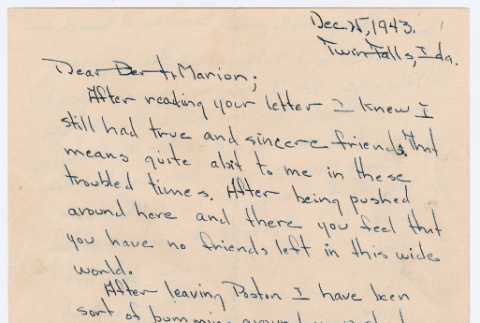 Dec. 25, 1943.
Twin Falls, Ida.
Dear Bert, Marion;
After reading your letter I knew I
still had true and sincere friends. That
means quite abit to me in these
troubled times. After being pushed
around here and there you feel that
you have no friends left in this wide
world.
After leaving Poston I have been
sort of bumming around